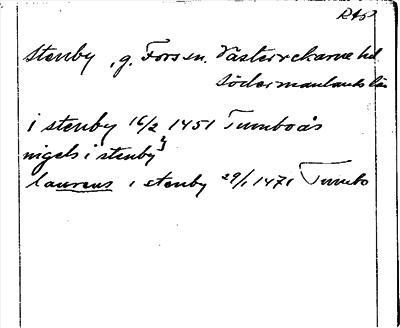 Stenby, g. Fors sn. Västerrekarne hd.
Södermanlands län
i stenby 16/2 1451 Tumboås
nigels i stenby
laurens i stenby 29/1 1471 Tumbo